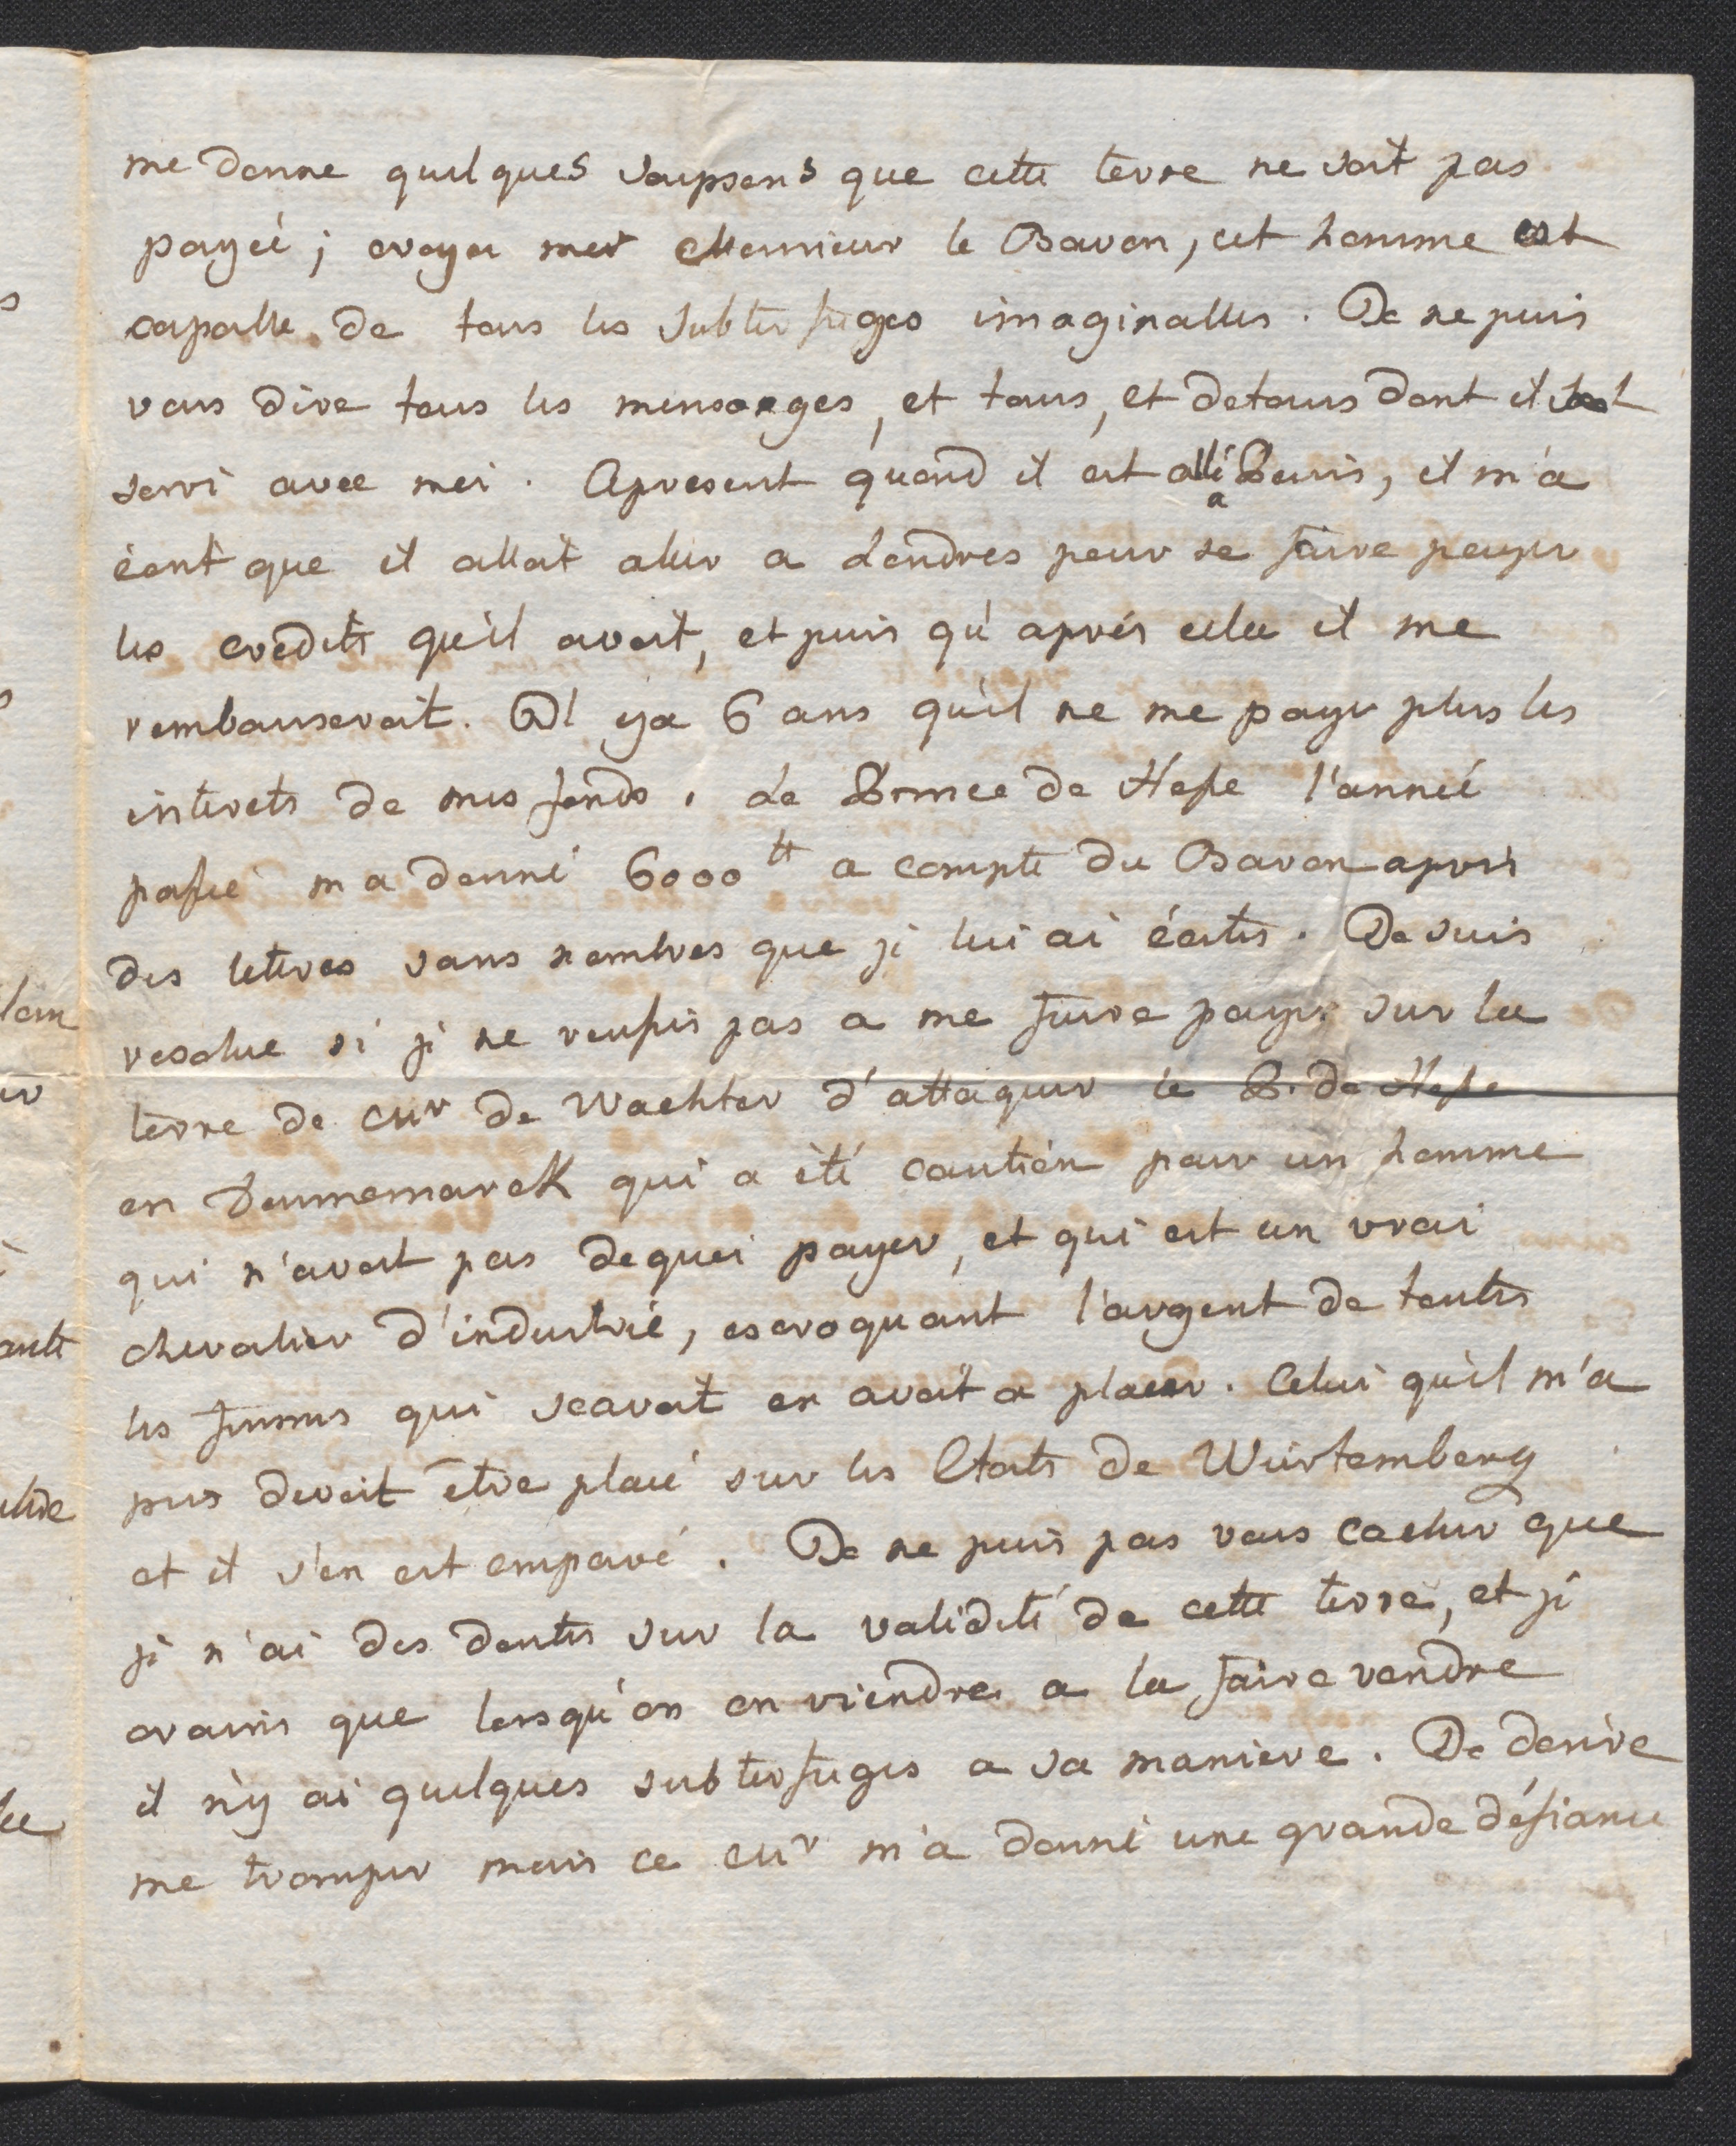 me donne quelques soupsons que cette terre ne soit pas
payeé ; croyez moi Monsieur le Baron, cet homme est
capable de tous les subterfuges imaginables. Je ne puis
vous dire tous les mensonges, et tous, et detours dont il s'est
servi avec moi. Apresent quand il est allé a Paris, il m'a
écrit que il alloit aller a Londres pour se faire payer
les credits qu'il avoit, et puis qu'aprés cela il me
rembourseroit. Il y a 6 ans qu'il ne me paye plus les
interets de mes fonds. Le Prince de Hesse l'anneé
passeé m'a donné 6000 tt a compte du Baron apres
des lettres sans nombres que je lui ai écrites. Je suis
resolue si je ne reussis pas a me faire payer sur la
terre de cur de Wachter d'attaquer le P. de Hesse
en Dannemarck qui a été caution pour un homme
qui n'avoit pas dequoi payer, et qui est un vrai
chevalier d'industrié, escroquant l'argent de toutes
les femmes qui scavoit en avoit a placer. Celui qu'il m'a
pris devoit être placé sur les Etats de Würtemberg
et il s'en est emparé. Je ne puis pas vous cacher que
je n'ai des doutes sur la validité de cette terre, et je
crains que lorsqu'on en viendra a la faire vendre
il n'y ai quelques subterfuges a sa maniere. Je desire
me tromper mais ce cur m'a donné une grande défiance